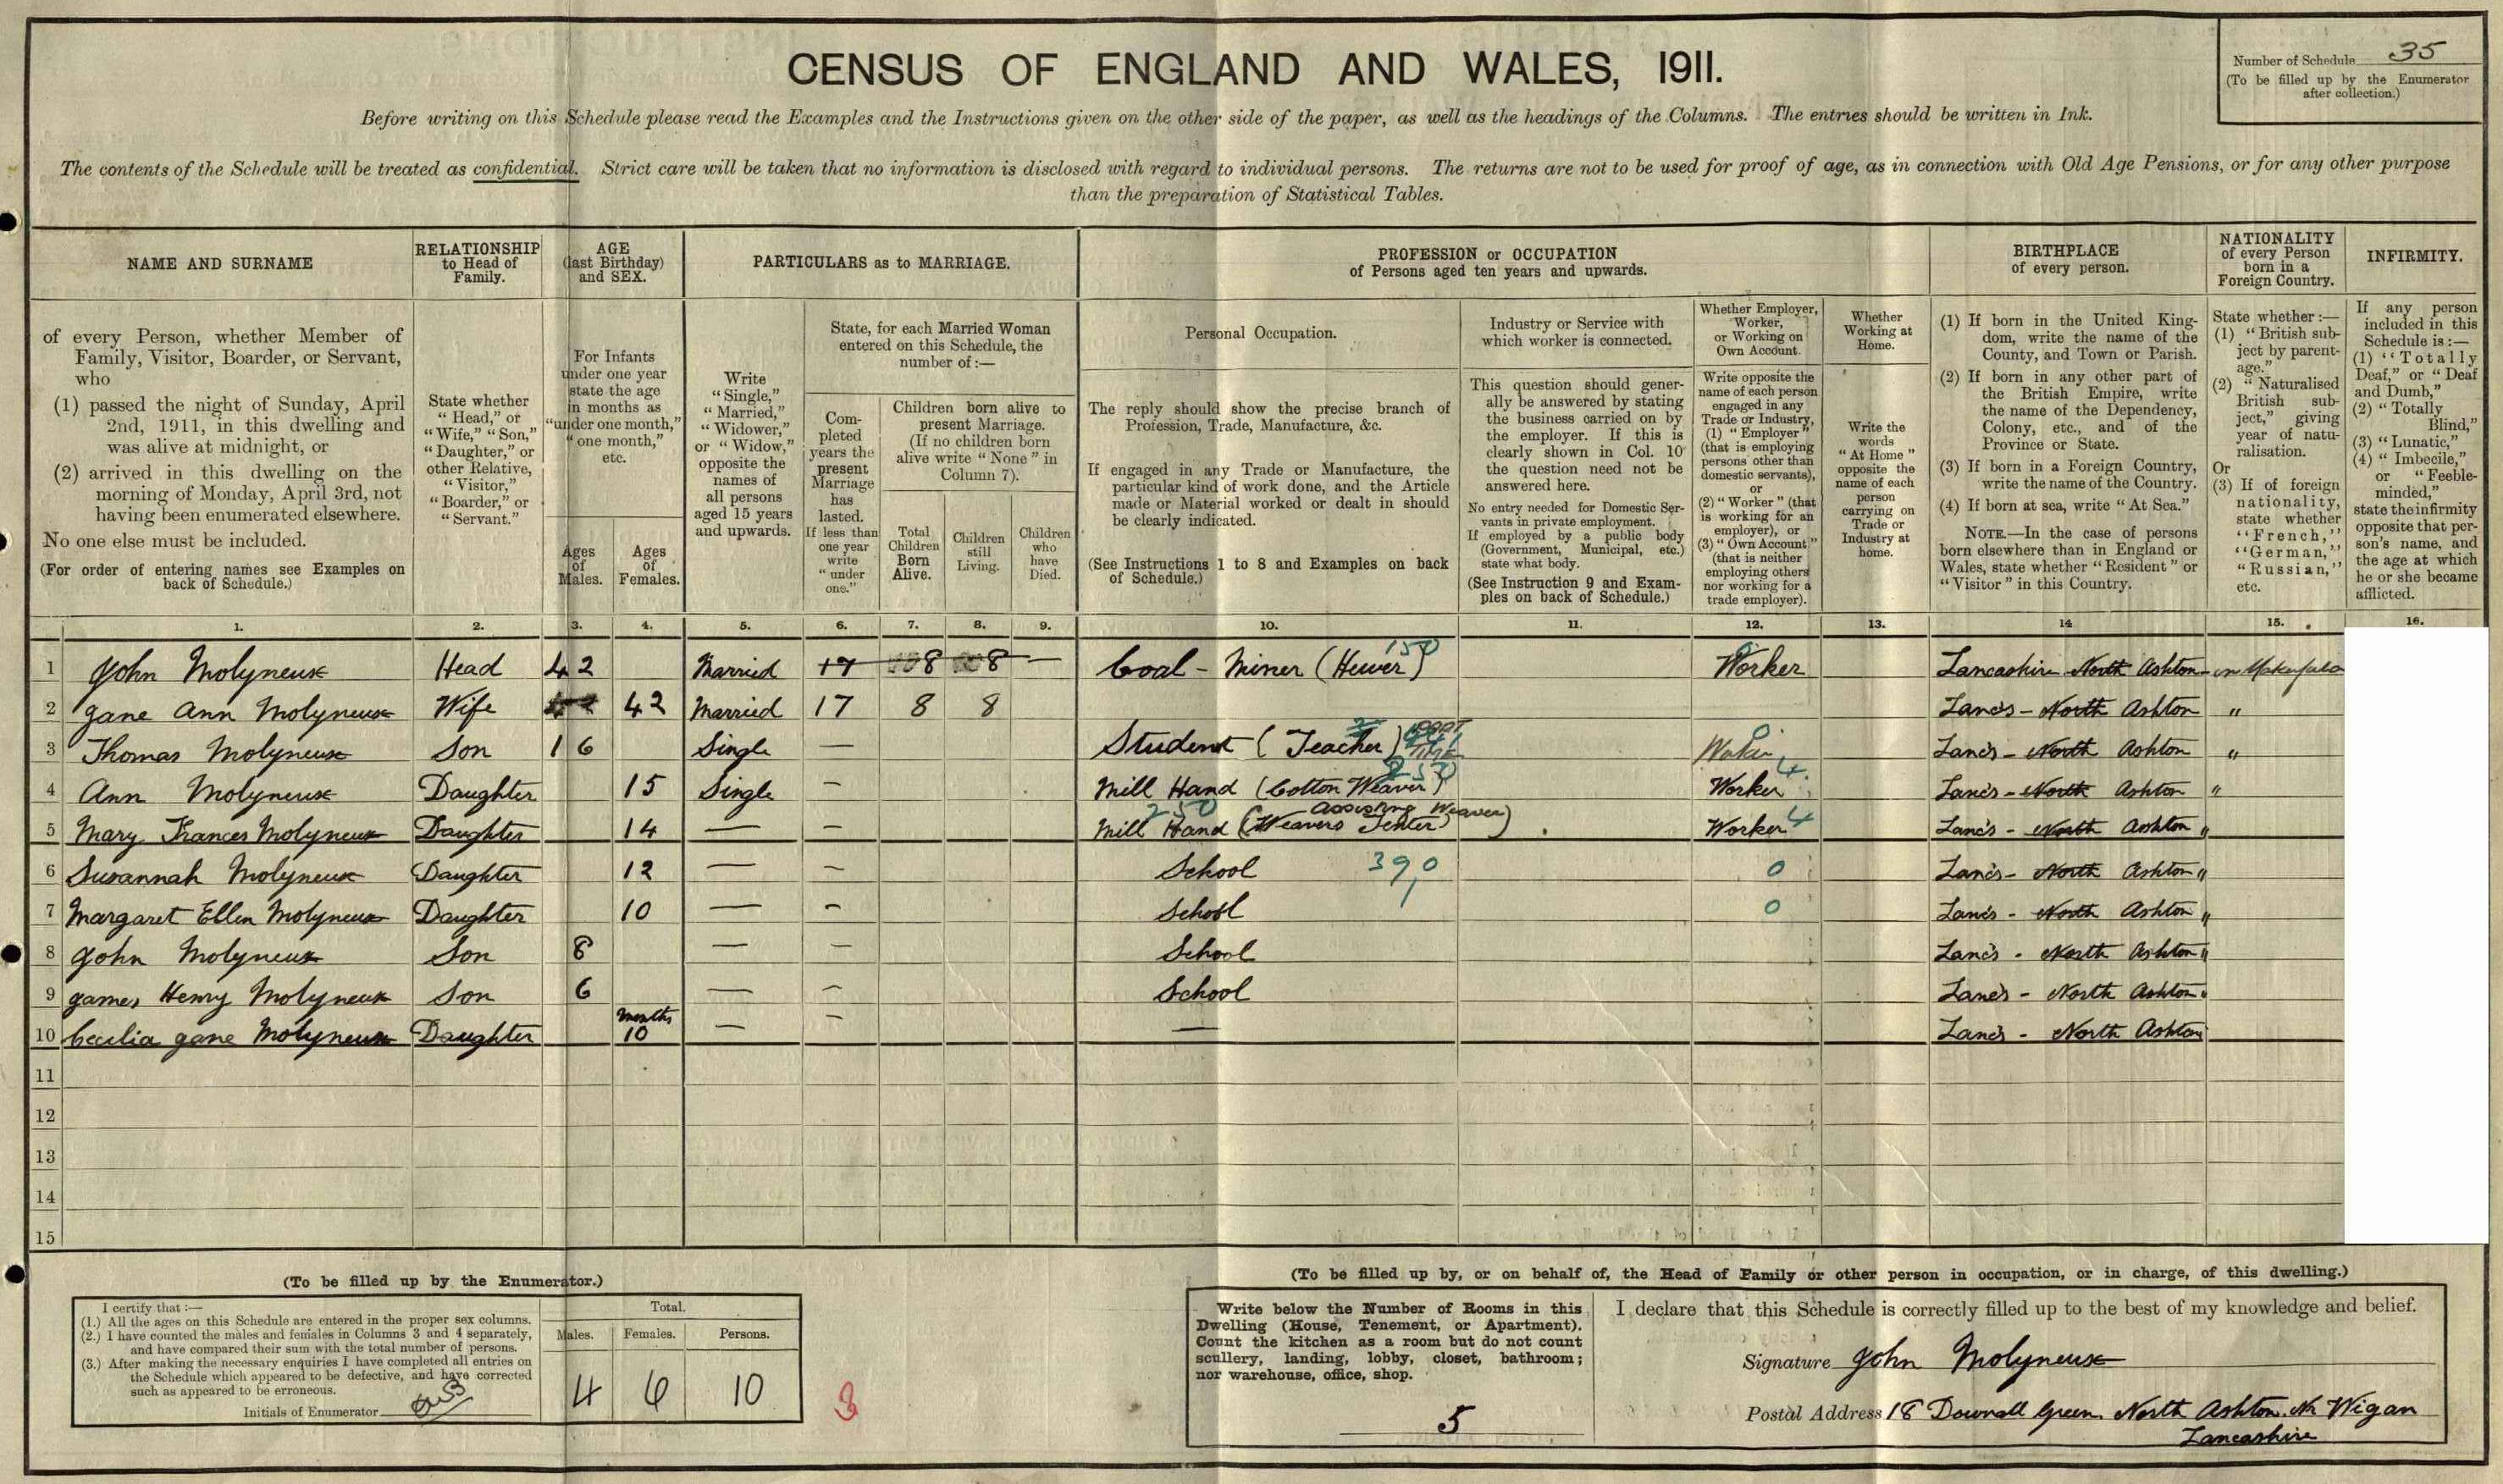 CENSUS OF ENGLAND AND WALES, 1911.
Number of Schedule 35
(To be filled up by the Enumerator
after collection.)
Before writing on this Schedule please read the Examples and the Instructions given on the other side of the paper, as well as the headings of the Columns. The entries should be written in Ink.
The contents of the Schedule will be treated as confidential. Strict care will be taken that no information is disclosed with regard to individual persons. The returns are not to be used for proof of age, as in connection with Old Age Pensions, or for any other purpose
than the preparation of Statistical Tables.
NAME AND SURNAME
of every Person, whether Member of
Family, Visitor, Boarder, or Servant,
who
(1) passed the night of Sunday, April
2nd, 1911, in this dwelling and
was alive at midnight, or
(2) arrived in this dwelling on the
morning of Monday, April 3rd, not
having been enumerated elsewhere.
No one else must be included.
(For order of entering names see Examples on
back of Schedule.)
RELATIONSHIP
to Head of
Family.
State whether
"Head," or
"Wife," "Son,"
"Daughter," or
other Relative,
"Visitor,"
"Boarder," or
"Servant."
AGE
(last Birthday)
and SEX.
For Infants
under one year
state the age
in months as
"under one month,"
"one month,"
etc.
Ages
of
Males.
Ages
of
Females.
PARTICULARS as to MARRIAGE.
Write
"Single,"
"Married,"
"Widower,"
or "Widow,"
opposite the
names of
all persons
aged 15 years
and upwards.
State, for each Married Woman
entered on this Schedule, the
number of:—
Com-
pleted
years the
present
Marriage
has
lasted.
If less than
one year
write
"under
one."
Children born alive to
present Marriage.
(If no children born
alive write "None" in
Column 7).
Total
Children
Born
Alive.
Children
still
Living.
Children
who
have
Died.
PROFESSION or OCCUPATION
of Persons aged ten years and upwards.
Personal Occupation.
The reply should show the precise branch of
Profession, Trade, Manufacture, &c.
If engaged in any Trade or Manufacture, the
particular kind of work done, and the Article
made or Material worked or dealt in should
be clearly indicated.
(See Instructions 1 to 8 and Examples on back
of Schedule.)
Industry or Service with
which worker is connected.
This question should gener-
ally be answered by stating
the business carried on by
the employer. If this is
clearly shown in Col. 10
the question need not be
answered here.
No entry needed for Domestic Ser-
vants in private employment.
If employed by a public body
(Government, Municipal, etc.)
state what body.
(See Instruction 9 and Exam-
ples on back of Schedule.)
Whether Employer,
Worker,
or Working on
Own Account.
Write opposite the
name of each person
engaged in any
Trade or Industry,
(1) "Employer"
(that is employing
persons other than
domestic servants),
or
(2) "Worker" (that
is working for an
employer), or
(3) "Own Account"
(that is neither
employing others
nor working for a
trade employer).
Whether
Working at
Home.
Write the
words
"At Home"
opposite the
name of each
person
carrying on
Trade or
Industry at
home.
BIRTHPLACE
of every person.
(1) If born in the United King-
dom, write the name of the
County, and Town or Parish.
(2) If born in any other part of
the British Empire, write
the name of the Dependency,
Colony, etc., and of the
Province or State.
(3) If born in a Foreign Country,
write the name of the Country.
(4) If born at sea, write "At Sea."
NOTE.—In the case of persons
born elsewhere than in England or
Wales, state whether "Resident" or
"Visitor" in this Country.
NATIONALITY
of every Person
born in a
Foreign Country.
State whether:—
(1) "British sub-
ject by parent-
age."
(2) "Naturalised
British sub-
ject," giving
year of natu-
ralisation.
Or
(3) If of foreign
nationality,
state whether
"French,"
"German,"
"Russian,"
etc.
INFIRMITY.
If any person
included in this
Schedule is:—
(1) "Totally
Deaf," or "Deaf
and Dumb,"
(2) "Totally
Blind,"
(3) "Lunatic,"
(4) "Imbecile,"
or "Feeble-
minded,"
state the infirmity
opposite that per-
son's name, and
the age at which
he or she became
afflicted.
1. 2. 3. 4. 5. 6. 7. 8. 9. 10. 11. 12. 13. 14 15. 16.
1 John Molyneux Head 42 Married 17 8 8 — Coal - Miner (Hewer) 150 Worker Lancashire North Ashton - in Makerfield
2 Jane Ann Molyneux Wife 42 Married 17 8 8 Lancs - North Ashton "
3 Thomas Molyneux Son 16 Single — Student (Teacher) PART TIME Lancs - North Ashton "
4 Ann Molyneux Daughter 15 Single — Mill Hand (Cotton Weaver) 250 Worker 4 Lancs - North Ashton "
5 Mary Frances Molyneux Daughter 14 — — 250 Mill Hand (Weavers Tenter) Assisting Weaver) Worker 4 Lancs - North Ashton "
6 Susannah Molyneux Daughter 12 — — School 390 0 Lancs - North Ashton "
7 Margaret Ellen Molyneux Daughter 10 — — School 0 Lancs - North Ashton "
8 John Molyneux Son 8 — — School Lancs - North Ashton "
9 James Henry Molyneux Son 6 — — School Lancs - North Ashton "
10 Cecilia Jane Molyneux Daughter months 10 — — — Lancs - North Ashton
11
12
13
14
15
(To be filled up by the Enumerator.)
I certify that:—
(1.) All the ages on this Schedule are entered in the proper sex columns.
(2.) I have counted the males and females in Columns 3 and 4 separately,
and have compared their sum with the total number of persons.
(3.) After making the necessary enquiries I have completed all entries on
the Schedule which appeared to be defective, and have corrected
such as appeared to be erroneous.
Initials of Enumerator
Total.
Males. Females. Persons.
4 6 10
3
(To be filled up by, or on behalf of, the Head of Family or other person in occupation, or in charge, of this dwelling.)
Write below the Number of Rooms in this
Dwelling (House, Tenement, or Apartment).
Count the kitchen as a room but do not count
scullery, landing, lobby, closet, bathroom;
nor warehouse, office, shop.
5
I declare that this Schedule is correctly filled up to the best of my knowledge and belief.
Signature John Molyneux
Postal Address 18 Downall Green, North Ashton, Nr Wigan
Lancashire